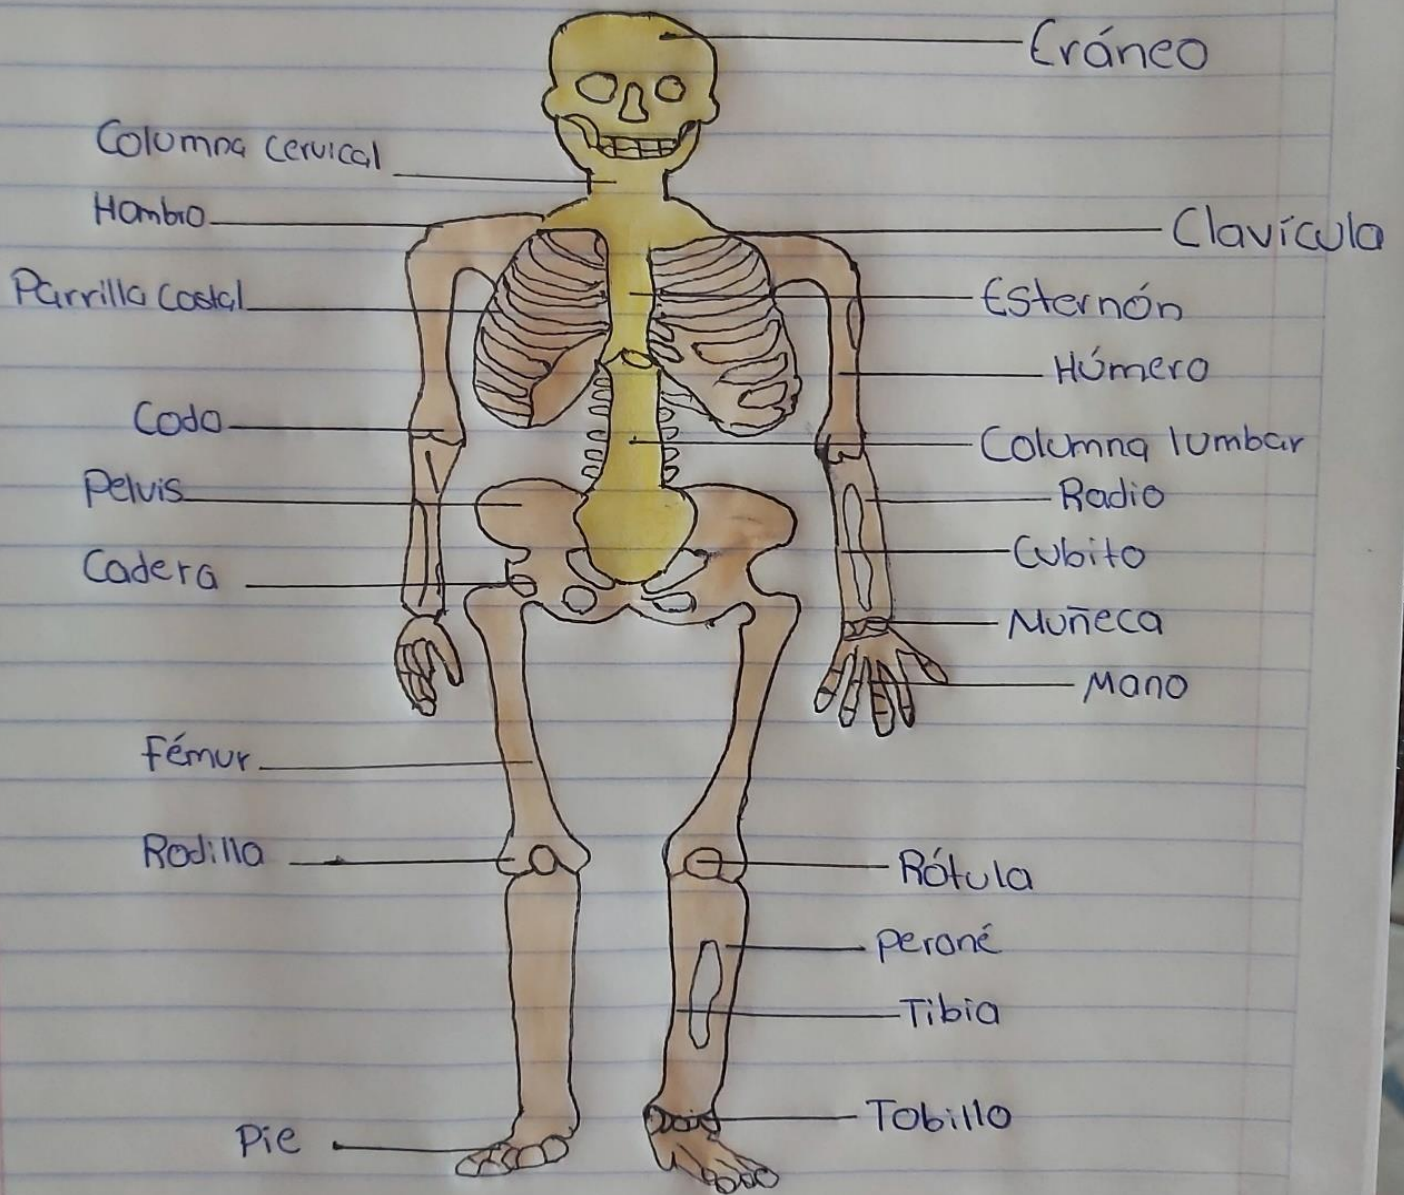 Cráneo
Columna cervical
Hombro
Clavícula
Parrilla Costal
Esternón
Húmero
Codo
Columna lumbar
Pelvis
Radio
Cubito
Cadera
Muñeca
Mano
Fémur
Rodilla
Rótula
Peroné
Tibia
Tobillo
Pie